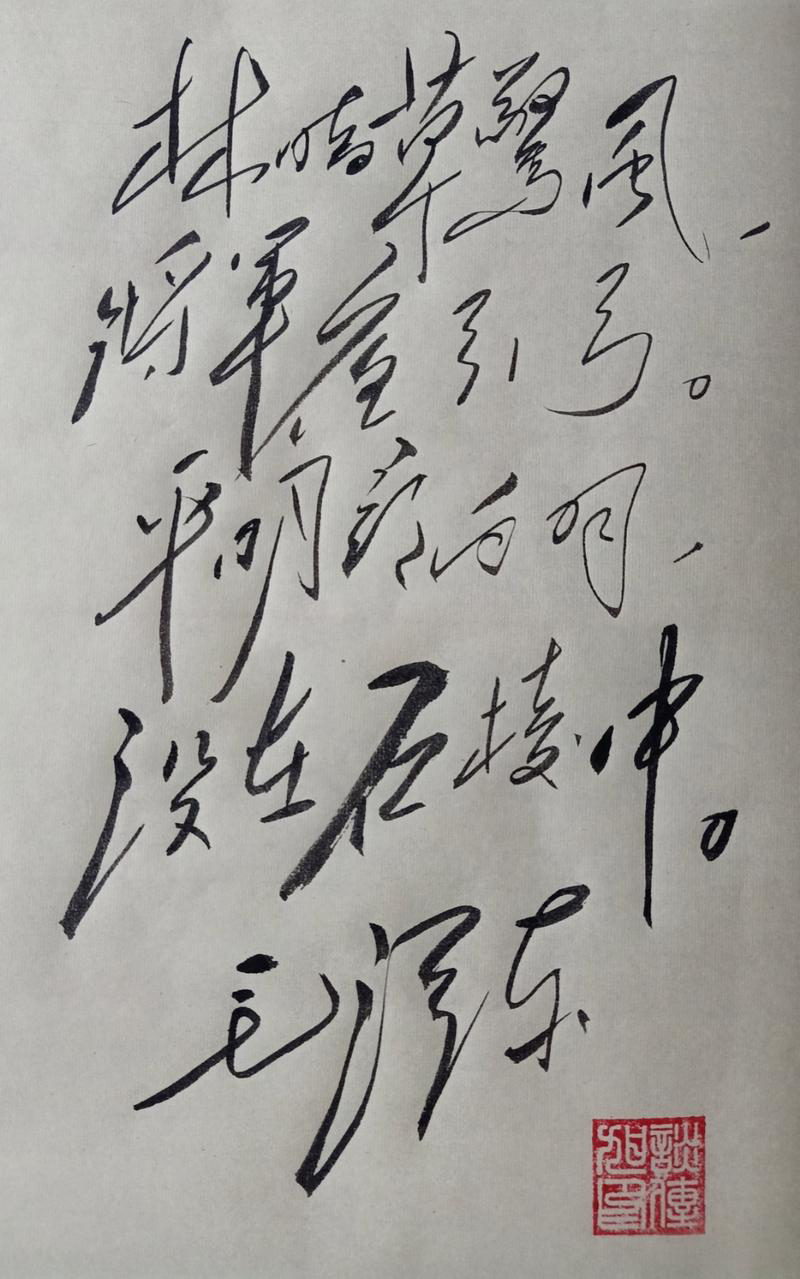 林暗草驚風、
將軍夜引弓。
平明尋白羽、
没在石棱中。
毛泽东